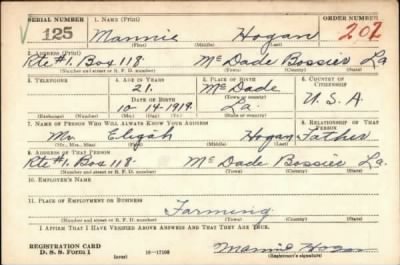 SERIAL NUMBER 1. NAME (Print) ORDER NUMBER
125 Mannie Hogan 202
(First) (Middle) (Last)
2. ADDRESS (Print)
Rte #1. Box 118 McDade Bossier La
(Number and street or R. F. D. number) (Town) (County) (State)
3. TELEPHONE 4. AGE IN YEARS 5. PLACE OF BIRTH 6. COUNTRY OF CITIZENSHIP
21. McDade
DATE OF BIRTH (Town or county)
10-14-1919. La. U.S.A
(Exchange) (Number) (Mo.) (Day) (Yr.) (State or country)
7. NAME OF PERSON WHO WILL ALWAYS KNOW YOUR ADDRESS 8. RELATIONSHIP OF THAT PERSON
Mr. Elijah Hogan Father
(Mr., Mrs., Miss) (First) (Middle) (Last)
9. ADDRESS OF THAT PERSON
Rte #1. Box 118- McDade Bossier La.
(Number and street or R. F. D. number) (Town) (County) (State)
10. EMPLOYER'S NAME
11. PLACE OF EMPLOYMENT OR BUSINESS
Farming
(Number and street or R. F. D. number) (Town) (County) (State)
I AFFIRM THAT I HAVE VERIFIED ABOVE ANSWERS AND THAT THEY ARE TRUE.
REGISTRATION CARD
D. S. S. Form 1 (over) 16—17105 Mannie Hogan
(Registrant's signature)